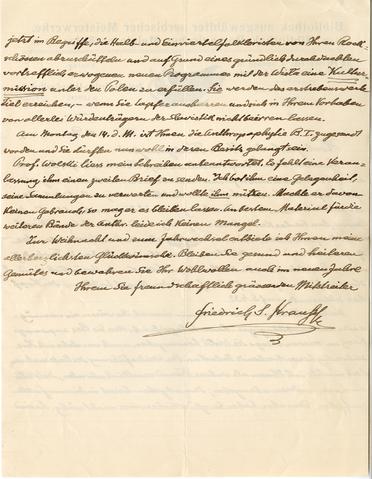 jetzt im Begriffe, die Halb- und Einviertelfolkloristen von Ihren Rock-
schössen abzuschütteln und auf Grund eines gründlich durchdachten
vortrefflich erwogenen neuen Programmes mit der Wisła eine Kultur-
mission unter den Polen zu erfüllen. Sie werden das erstrebenswerte
Ziel erreichen, – wenn Sie tapfer ausharren und sich in Ihrem Vorhaben
von allerlei Würdenträgern der Slawistik nicht beirren lassen.
Am Montag den 14. d. M. ist Ihnen die Anthropophyteia B. I. zugesandt
worden und Sie dürften nun wohl in deren Besitz gelangt sein.
Prof. Wolski liess mein Schreiben unbeantwortet. Es fehlt eine Veran-
lassung ihm einen zweiten Brief zu senden. Ich bot ihm eine Gelegenheit,
seine Sammlungen zu verwerten und wollte ihm nützen. Machte er davon
keinen Gebrauch, so mag er es bleiben lassen. An bestem Material für die
weiteren Bände der Anthr. leide ich keinen Mangel.
Zur Weihnacht und zum Jahrwechsel entbiete ich Ihnen meine
allerherzlichsten Glückwünsche. Bleiben Sie gesund und heiteren
Gemütes und bewahren Sie Ihr Wohlwollen auch im neuen Jahre
Ihrem Sie freundschaftlich grüssenden Mitstreiter
Friedrich S. Krauss